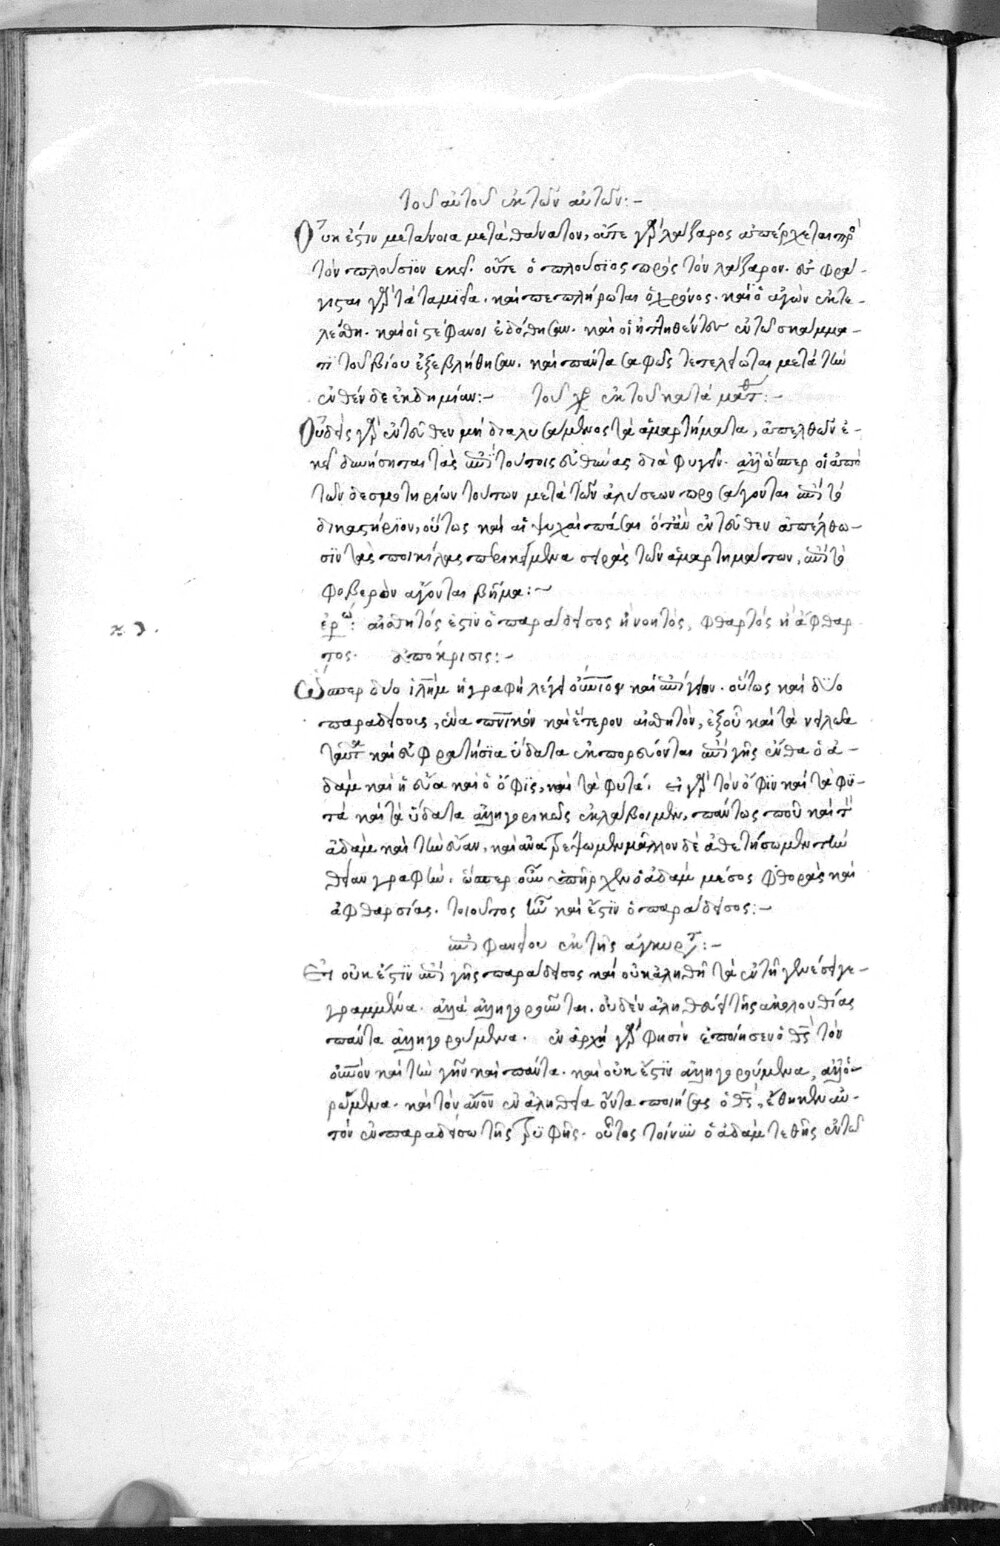 τοῦ αὐτοῦ ἐκ τῶν αὐτῶν:-
Οὐκ ἔστιν μετάνοια μετὰ θάνατον, οὔτε γὰρ λάζαρος ἀπέρχεται πρὸς
τὸν πλούσϊον ἐκεῖ. οὔτε ὁ πλούσϊος πρὸς τὸν λάζαρον. ἐσφρά-
γισται γὰρ τὰ ταμεῖα. καὶ πεπλήρωται ὁ χρόνος. καὶ ὁ ἀγὼν ἐτε-
λέσθη. καὶ οἱ στέφανοι ἐδόθησαν. καὶ οἱ ἡττηθέντες ἐν τῷ σκάμμα-
τι τοῦ βίου ἐξεβλήθησαν. καὶ πάντα σαφῶς τετελείωται μετὰ τὴν
ἐνθένδε ἐκδημίαν:- τοῦ χρ ἐκ τοῦ κατὰ ματθ:-
Οὐδεὶς γὰρ ἐντεῦθεν μὴ διαλυσάμενος τὰ ἁμαρτήματα, ἀπελθὼν ἐ-
κεῖ δυνήσηται τὰς ἐπὶ τούτοις εὐθύνας διαφυγεῖν. ἀλλ' ὥσπερ οἱ ἀπὸ
τῶν δεσμωτηρίων τούτων μετὰ τῶν ἁλύσεων προσάγονται ἐπὶ τὸ
δικαστήρϊον, οὕτως καὶ αἱ ψυχαὶ πᾶσαι ὅταν ἐντεῦθεν ἀπέλθω-
σϊν τὰς ποικίλας περικείμεναι σειρὰς τῶν ἁμαρτημάτων, ἐπὶ τὸ
φοβερὸν ἄγονται βῆμα:-
κδ.
ἐρώ: αἰσθητός ἐστϊν ὁ παράδεισος ἢ νοητός, φθαρτὸς ἢ ἄφθαρ
τος. ἀπόκρισις:-
Ὥσπερ δύο ἱλὴμ ἡ γραφὴ λέγει οὐνιον καὶ ἐπίγειον. οὕτως καὶ δύο
παραδείσους, ἕνα πνικὸν καὶ ἕτερον αἰσθητὸν, ἐξ οὗ καὶ τὰ νειλῶα
ταῦτα καὶ εὐφρατήσϊα ὕδατα ἐκπορεύονται ἐπὶ γῆς ἔνθα ὁ ἀ-
δὰμ καὶ ἡ εὔα καὶ ὁ ὄφϊς, καὶ τὰ φυτά. εἰ γὰρ τὸν ὄφϊν καὶ τὰ φϋ-
τὰ καὶ τὰ ὕδατα ἀλληγορικῶς ἐκλάβοιμεν, πάντως που καὶ τὸν
ἀδὰμ καὶ τὴν εὔαν, καὶ ἀνατρέψωμεν μᾶλλον δὲ ἀθετήσωμεν τὴν
θείαν γραφήν. ὥσπερ οὖν ὑπῆρχεν ὁ ἀδὰμ μέσος φθορᾶς καὶ
ἀφθαρσίας. τοιοῦτος ἦν καὶ ἔστϊν ὁ παράδεισος:-
ἐπιφανίου ἐκ τῆς ἀγκυρτ:-
Εἰ οὐκ ἔστϊν ἐπὶ γῆς παράδεισος καὶ οὐκ ἀληθῆ τὰ ἐν τῇ γενέσει γε-
γραμμένα. ἀλλὰ ἀλληγορεῖται. οὐδὲν ἀληθεύει τῆς ἀκολουθίας
πάντα ἀλληγορούμενα. ἐν ἀρχῇ γὰρ φησὶν ἐποίησεν ὁ θς τὸν
οὐνὸν καὶ τὴν γῆν καὶ πάντα. καὶ οὐκ ἔστϊν ἀλληγορούμενα, ἀλλ' ὁ-
ρώμενα. καὶ τὸν ἄνον ἐν ἀληθεία ὄντα ποιήσας ὁ θς, ἔθηκεν αὐ-
τὸν ἐν παραδείσω τῆς τρϋφῆς. οὗτος τοίνυν ὁ ἀδὰμ τεθεὶς ἐν τῶ